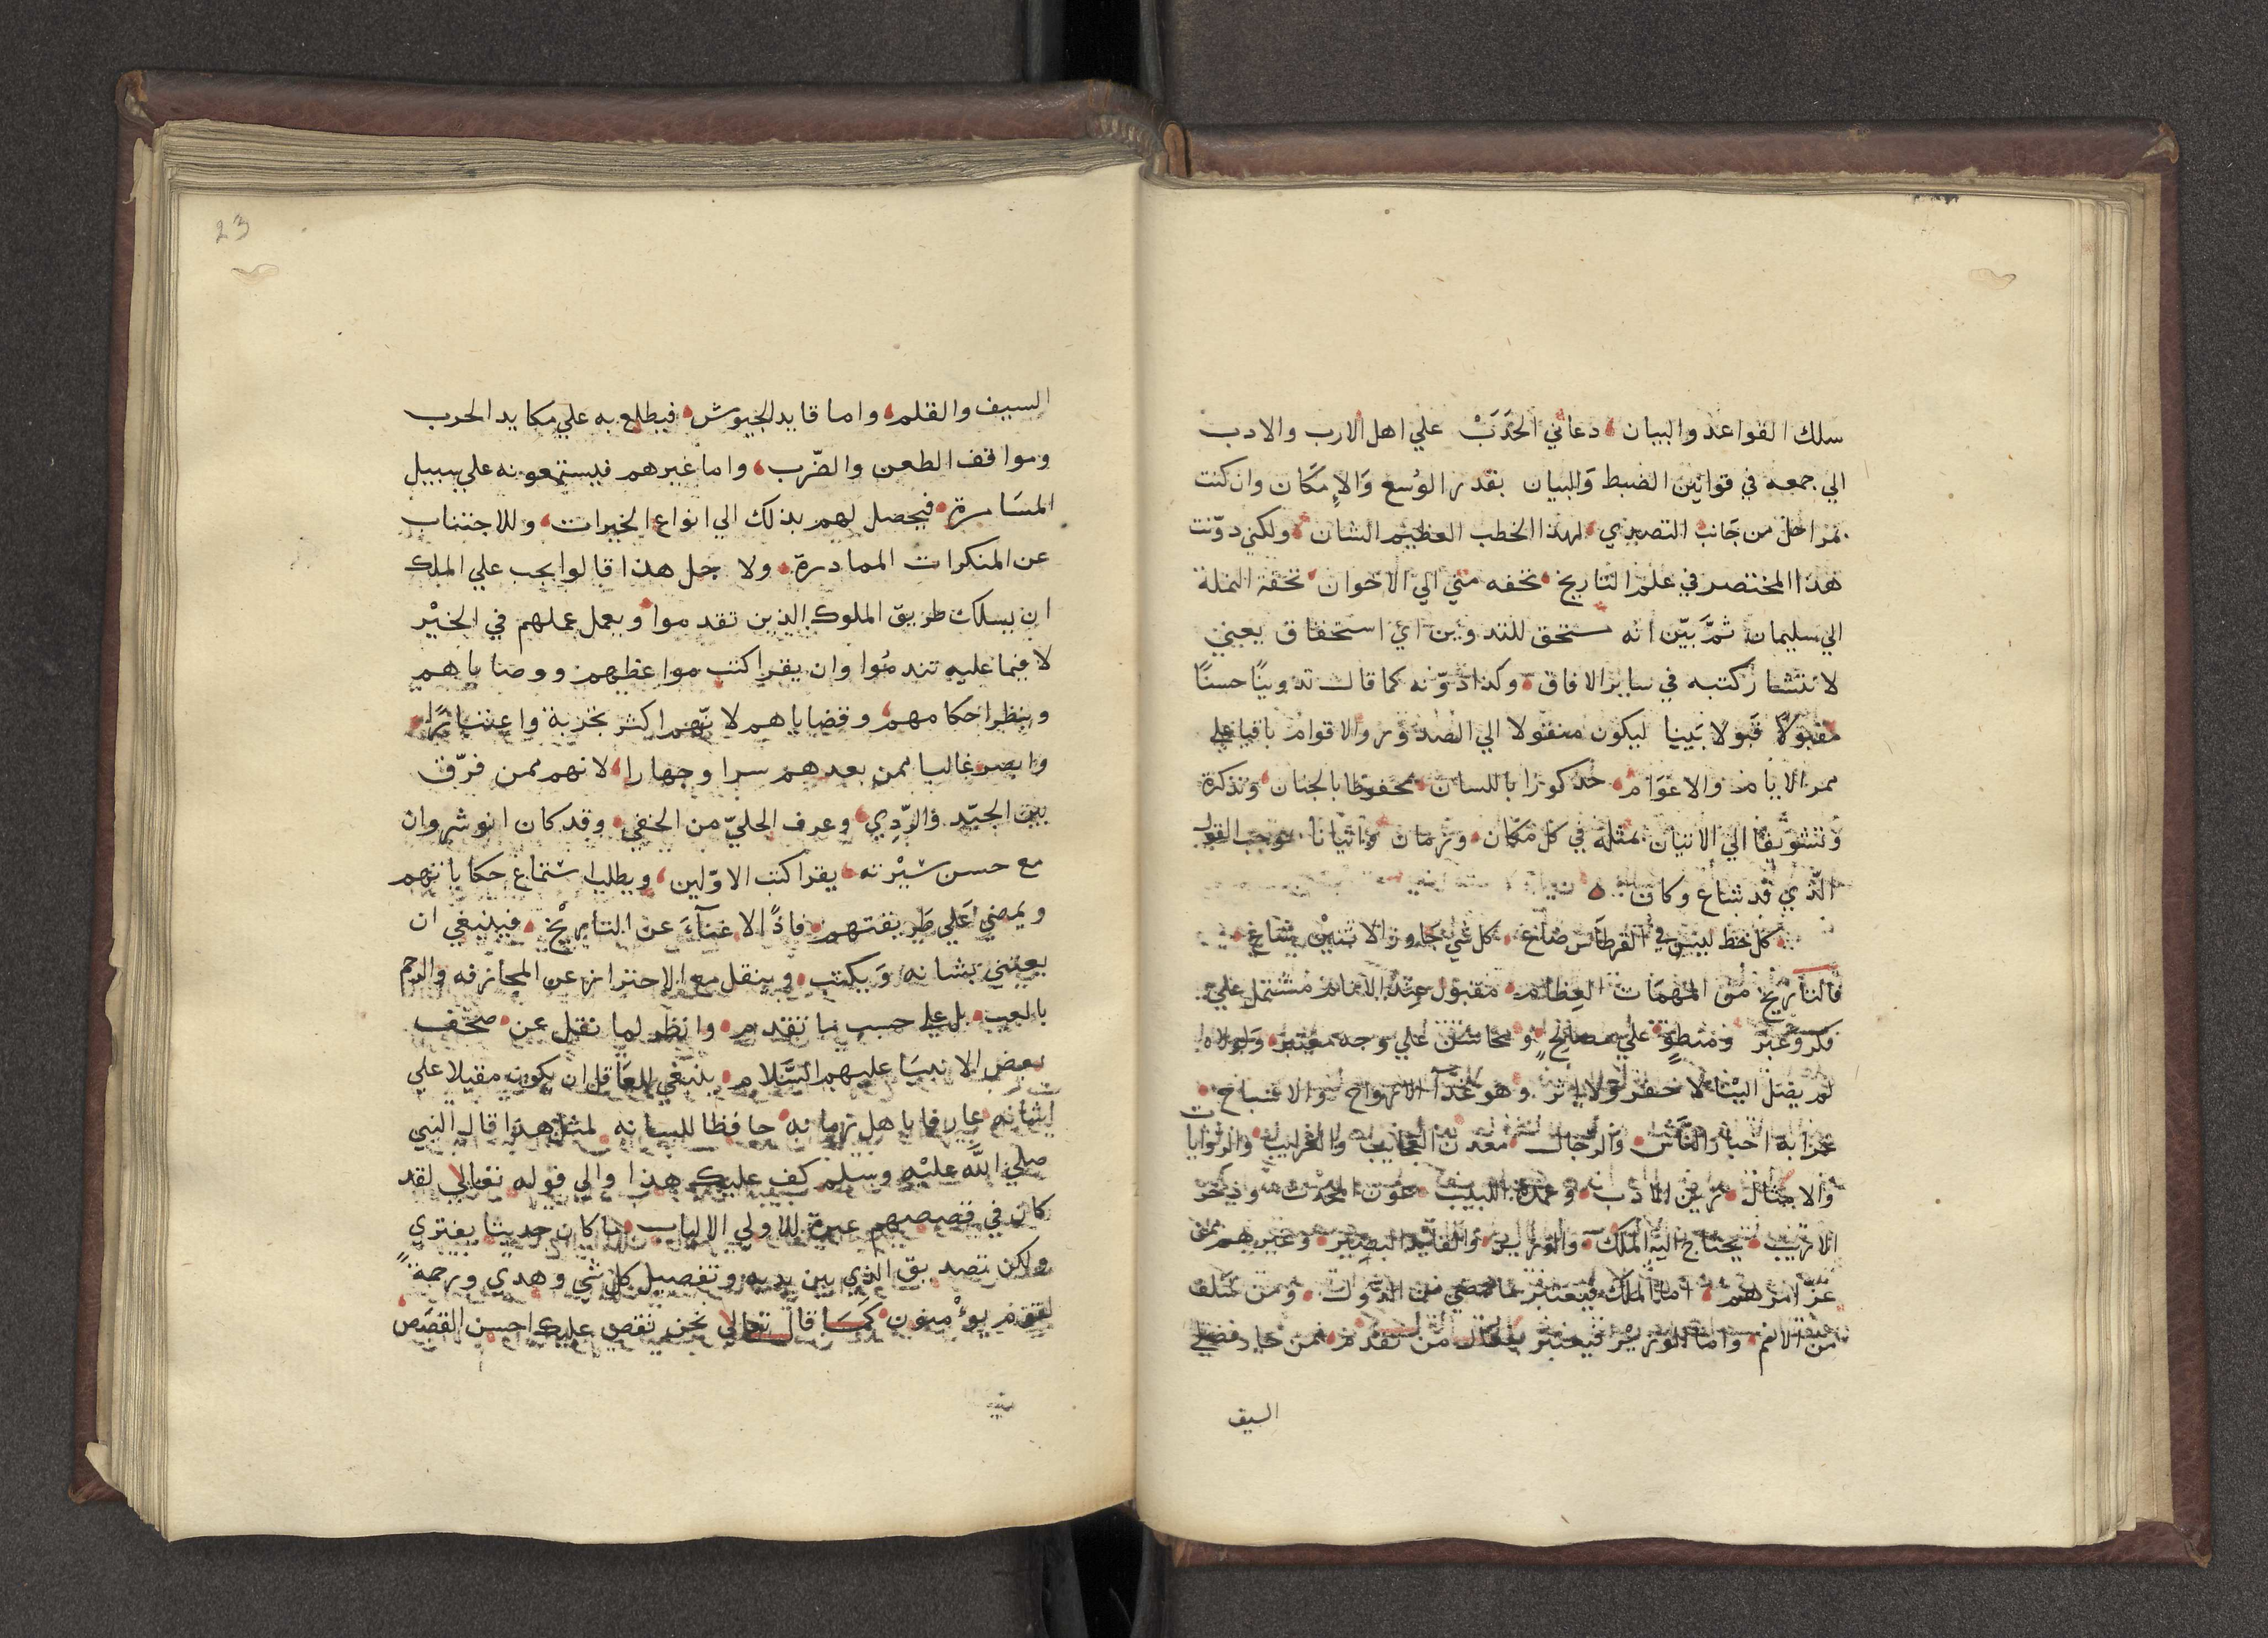 سلك القواعد والبيان، دعاني الحَدَبْ علي اهل الارب والادب
الي جمعه في قوانين الضبط وَالبيان بقدر الوُسع وَالاِمكَان وان كنت
بمراحل من جَانب التصدي، لهذا الخطب العظيم الشان، ولكني دوّنت
هذا المختصر في علم التاريخ، تحفه مني الي الاخوان، تحفة النملة
الي سليمان، ثمَّ بيّن انه مستحق للتدوين اي استحقاق يعني
لانتشار كتبه في ساير الافاق، وكذا دوّنه كما قال تدوينًا حسنًا
مقبولاً قَبولا بَينا ليكون منقولا الي الصُدُور والاقوام باقيا علي
ممر الايام والاعوَام، مذكورا باللسان، محفوظا بالجنان، وتذكرة
وتشويقًا الي الاتيان بمثله في كل مَكان، وزمان واتيانا بموجب القول
الّذي قد شاع وكان
كل خط ليس في القرطَاس ضَاع، كل شي جَاوز الاثنيْن شاع
فالتأريخ من المهمَات العِظام، مقبول عِند الانام مُشتمل علي
فكر وعبر ومنطوٍ علي مصَالحٍ، ومحاسن علي وجه معتبر، وَلولاه
لم يصل اليْنا لا خبر ولا اثر وهو غذآ الارواح، والاشباح
خزانة اخبار النَّاس، والرجال، معدن العجائب والغرايب، والروايات
والامثال، زين الادب، وعمدة اللبيب، عون المحدث، وذخر
الاريب، يحتاج اليه الملك، والوزير، والقايد البصير، وغيرهم ممن
عز امرهم، اما الملك فيعتبر بما مضي من الدول، ومن سَلف
من الامم، واما الوزير فيعتبر بفعال من تقدم، ممن حاز فضلي
السيف
23
السيف والقلم، واما قايد الجيوش، فيطلع به علي مكايد الحرب
ومواقف الطعن والضّرب، واما غيرهم فيستمعونه علي سبيل
المسَامرة، فيحصل لهم بذلك الي انواع الخيرات، وللاجتناب
عن المنكرات المبادرة، ولاجل هذا قالوا يجب علي الملك
ان يسلك طريق الملوك الذين تقدموا، ويعمل عملهم في الخيْر
لا فيما عليه تندمُوا وان يقرا كتب مواعظهم ووصاياهم
وينظر احكامهم، وقضاياهم لانّهم اكثر تجربة واعتبارًا،
وابصر غالبا ممن بعدهم سرا وجهارا، لانهم ممن فرّق
بين الجيّد والرّدِي، وعرف الجليّ من الخفي، وقد كان انوشروان
مع حسن سيْرته، يقرا كتب الاوّلين، ويطلب استماع حكاياتهم
ويمضي عَلي طَريقتهم، فاذًا لا غنآءَ عن التاريْخ، فينبغي ان
يعتني بشانه وَيكتب، وينقل مع الاحتراز عن المجازفه والرجم
بالغيب، بل علي حسب ما تقدم، وانظر لما نقل عن صحف
بعض الانبيَا عليهم السَّلام، ينبغي للعَاقل ان يكون مقبلا علي
شانه عارفا باهل زمانه، حافظا للسانه، لمثل هذا قال النبي
صلي اللّه عليْه وسلم كف عليك هذا والي قوله تعالي لقد
كان في قصصهم عبرة للاولي الالباب، ما كان حديثا يفتري
ولكن تصديق الذي بين يديه وتفصيل كل شي وهدي ورحمةً
لقوم يؤْمنون، كمَا قال تعالي نحن نقص عليك احسن القصَص